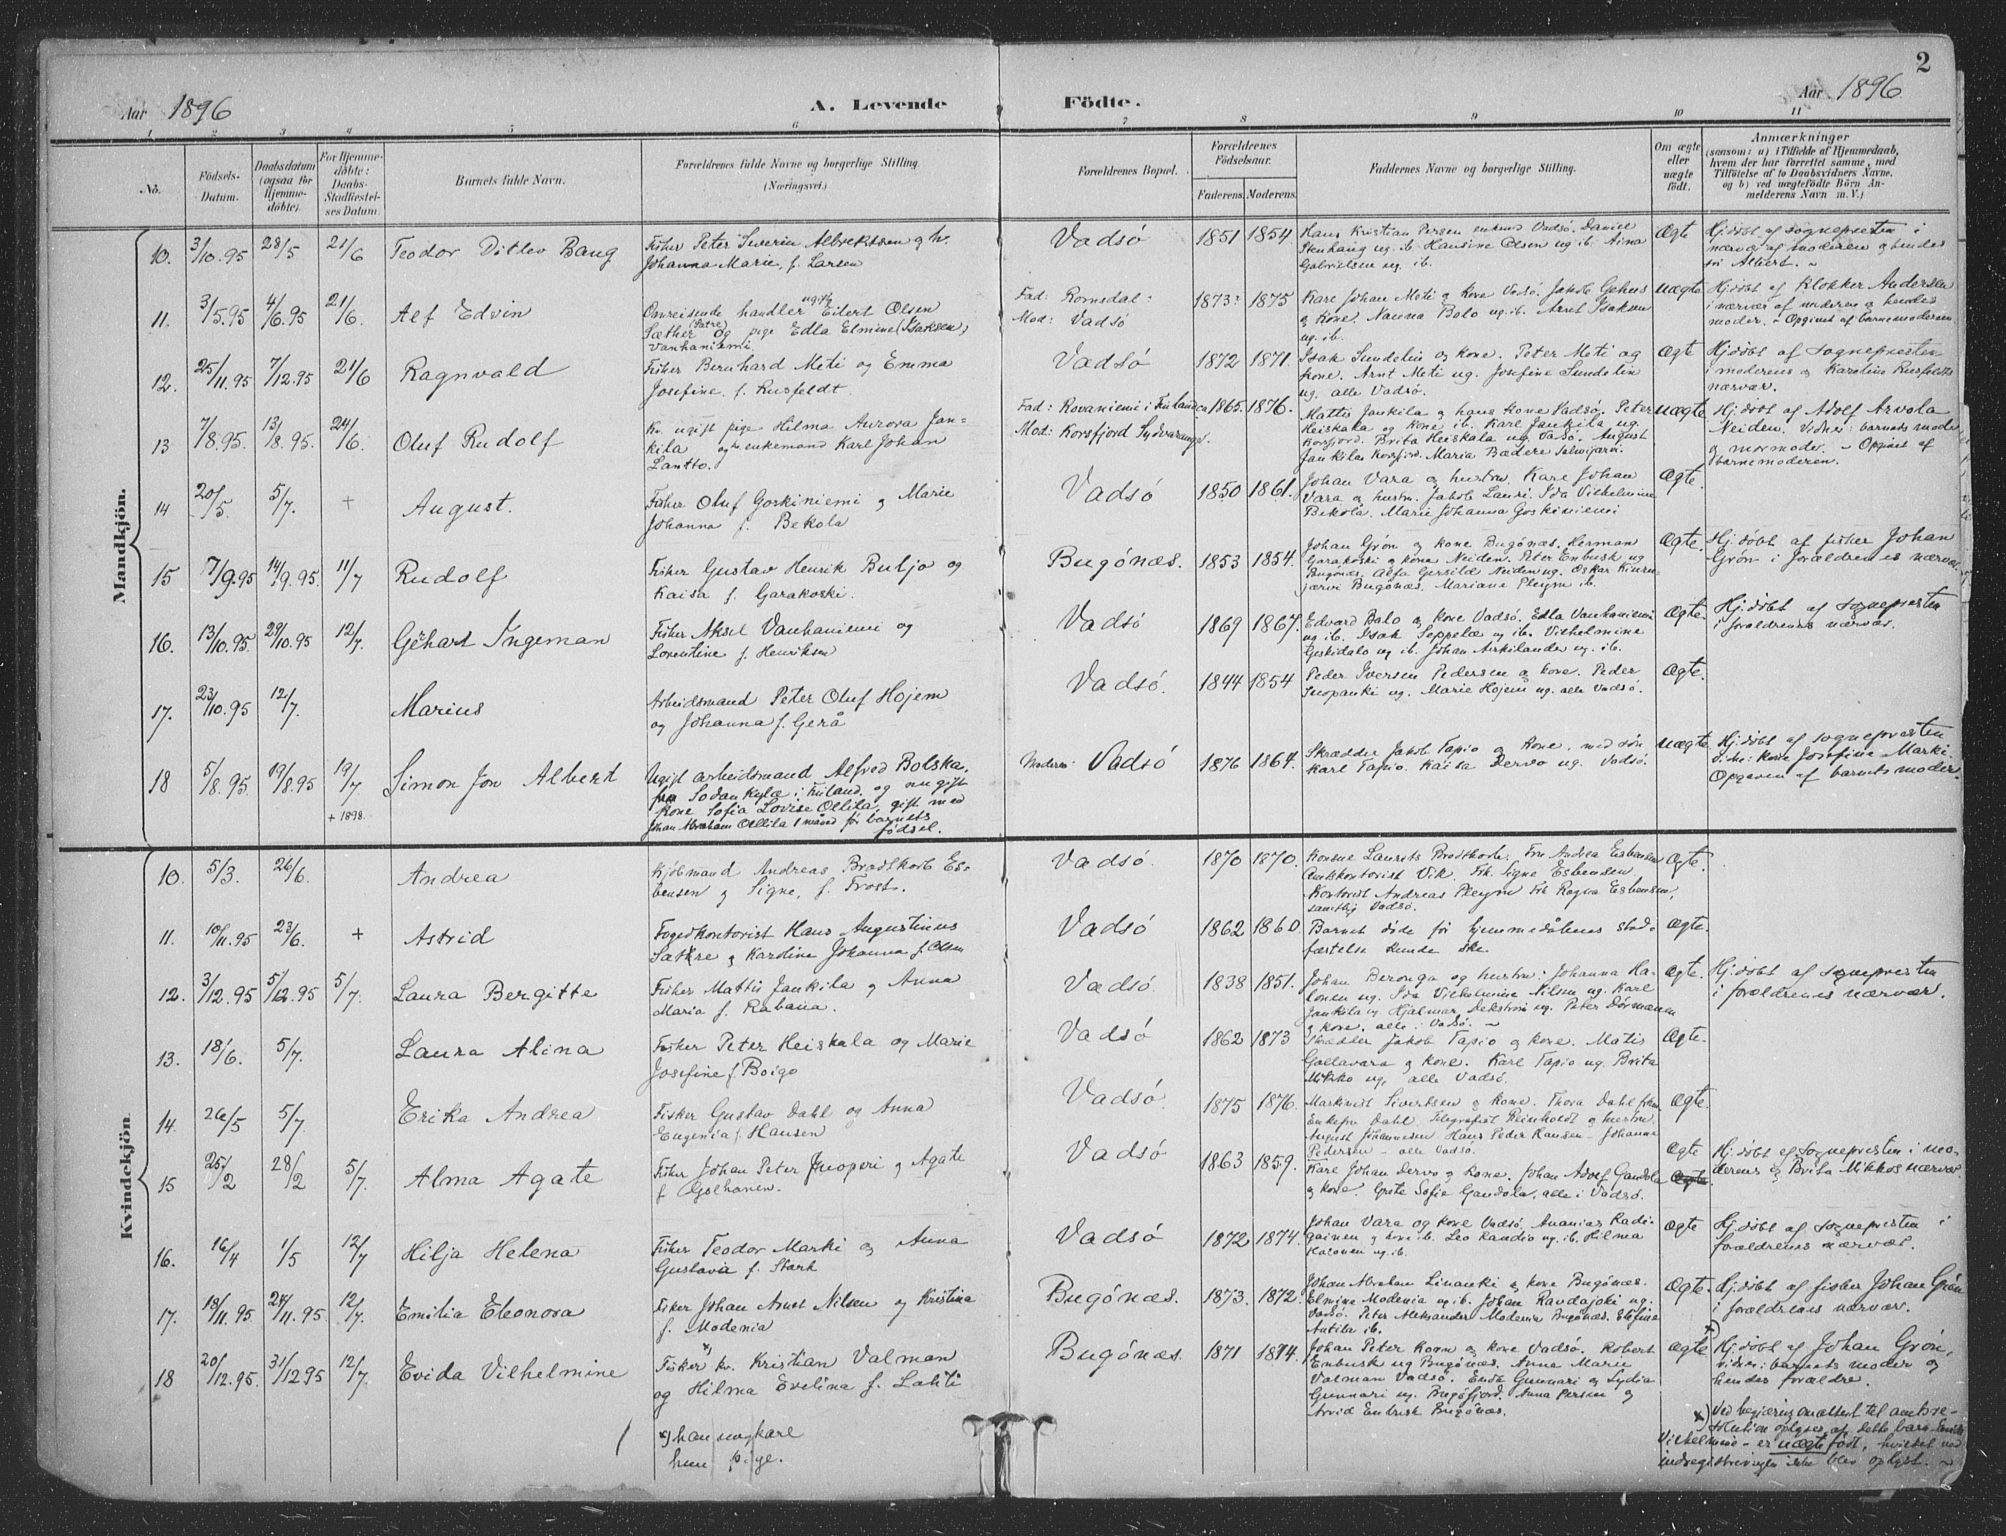 2
Aar 1896
A. Levende Födte.
Aar 1896
1 2 3 4 5 6 7 8 9 10 11
No.
Födsels-Datum.
Daabsdatum (ogsaa for Hjemme-döbte).
For Hjemme-döbte: Daabs-Stadfæstelses Datum.
Barnets fulde Navn.
Forældrenes fulde Navne og borgerlige Stilling. (Næringsvei.)
Forældrenes Bopæl.
Forældrenes Födselsaar.
Faderens. Moderens.
Faddernes Navne og borgerlige Stilling.
Om ægte eller uægte födt.
Anmærkninger
(saasom: a) i Tilfælde af Hjemmedaab, hvem der har forrettet samme, med Tilföielse af to Daabsvidners Navne, og b) ved uægtefödte Börn Anmelderens Navn m. V.)
Mandkjön.
10. 3/10.95 28/5 21/6 Teodor Ditlev Bang
Fisker Peter Severin Albrektsen og h.
Johanna Marie, f. Larsen
Vadsö 1851 1854
Hans Kristian Persen enkemd Vadsö. Daniel
Stenhaug ug. ib. Hansine Olsen ug. ib. Aina
Gabrielsen ug. ib.
Ægte
Hj.döbt af sognepresten i
nærvær af moderen og hendes
sön Albert.
11. 3/5.95 4/6.95 21/6. Alf Edvin
Omreisende handler ugift Eilert Olsen
Sæther (Patre) og pige Edla Elmine (Isaksen)
Vanhaniemi
Fad: Romsdal:
Mod: Vadsö
1873: 1875
Karl Johan Meti og kone Vadsö. Jakob Gehus
og kone. Nanna Balo ug. ib. Arnt Isaksen
ug. ib.
uægte
Hj.döbt af klokker Andersen
i nærvær af moderen og hendes
moder. - Opgivet af barnemoderen.
12. 25/11.95 7/12.95 21/6 Ragnvald
Fisker Bernhard Meti og Emma
Josefine f. Rusfeldt.
Vadsö 1872 1871.
Isak Sundelin og kone. Peter Meti og
kone. Arnt Meti ug. Josefine Sundelin
ug. alle Vadsö.
Ægte
Hj.döbt af sognepresten
i moderens og Karoline Rusfeldts
nærvær.
13 7/8.95. 13/8.95. 24/6. Oluf Rudolf
Kv. ugift pige Hilma Aurora Jan-
kila og enkemand Karl Johan
Lantto.
Fad: Rovaniemi i Finland
Mod: Korsfjord Sydvaranger.
1865. 1876.
Mattis Jankila og hans kone Vadsö. Peter
Heiskala og kone ib. Karl Jankila ug.
Korsfjord. Brita Heiskala ug. Vadsö. August
Jankila Korsfjord. Maria Bædere
uægte
Hj.döbt af Adolf Arvola
Neiden. Vidner: barnets moder
og mormoder. - Opgivet af
barnemoderen.
14 20/5. 5/7. + August.
Fisker Oluf Goskiniemi og Marie
Johanna f. Bekola
Vadsö 1850 1861.
Johan Vara og hustru. Karl Johan
Vara og hustru. Jakob Lauri. Ida Vilhelmine
Bekola. Marie Johanna Goskiniemi
Ægte.
15 7/9.95 14/9.95. 11/7 Rudolf
Fisker Gustav Henrik Buljo og
Kaisa f. Garakoski.
Bugönæs. 1853 1854.
Johan Grön og kone Bugönæs. Herman
Garakoski og kone Neiden. Peter Enbusk ug
Bugönæs. Alfa Neiden ug. Oskar
Bugönæs. Mariane Pleym ib.
Ægte.
Hj.döbt af fisker Johan
Grön i foraldrenes nærvær.
16. 13/10.95. 29/10.95 12/7. Gêhart Ingeman
Fisker Aksel Vanhaniemi og
Lorentine f. Henriksen
Vadsö 1869 1867.
Edvard Balo og kone Vadsö. Edla Vanhaniemi
ug. ib. Isak Seppelæ ug ib. Vilhelmine
ug ib. Johan ug. ib.
Ægte.
Hj.döbt af sognepresten
i foraldrenes nærvær.
17. 23/10.95 12/7. Marius
Arbeidsmand Peter Oluf Höjem
og Johanna f. Gerå
Vadsö. 1844 1854
Peder Iversen Pedersen og kone. Peder
ug. Marie Höjem ug. alle Vadsö.
Ægte.
18 5/8.95. 19/8.95 19/7 + 1898. Simon Jon Albert
Ugift arbeidsmand Alfred Bolska.
fra Sodankylæ i Finland. og nu gift
kone Sofia Lovise Ollila, gift med
Johan Abraham Ollila 1 måned för barnets
födsel.
Moderen: Vadsö 1876 1864.
Skrædder Jakob Tapio og kone. med sön
Karl Tapio. Kaisa Dervo ug. Vadsö.
uægte
Hj.döbt af sognepresten
kone Josefine Marki
Opgaven af barnets moder.
Kvindekjön
10. 5/3. 26/6. Andrea
Kjöbmand Andreas Brodtkorb Es-
bensen og Signe, f. Frost.
Vadsö. 1870 1870.
Konsul Laurits Brodtkorb. Fru Andrea Esbensen
Amtskontorist Vik. Frk. Signe Esbensen
Kontorist Andreas Pleym Frk Ragna Esbensen,
samtlig Vadsö.
Ægte.
11. 10/11.95 23/6. + Astrid
Fogedkontorist Hans Augustinus
Sætre og Karoline Johanna f. Olsen
Vadsö 1862 1860.
Barnet döde för hjemmedåbens stad-
fæstelse kunde ske.
Ægte.
12. 3/12.95 5/12.95 5/7. Laura Bergitte
Fisker Mattis Jankila og Anna
Maria f. Rabana.
Vadsö. 1838 1851.
Johan Beronga og hustru. Johanna Ha-
lonen ug. Ida Vilhelmine Nilsen ug. Karl
Jankila ug Hjalmar ug. Peter
og kone. alle i Vadsö.
Ægte.
Hj.döbt af sognepresten
i foraldrenes nærvær.
13. 18/6. 5/7. Laura Alina
Fisker Peter Heiskala og Marie
Josefine f. Boigo
Vadsö 1862 1873
Skrædder Jakob Tapio og kone. Matis
Gallavara og kone. Karl Tapio ug. Brita
Mikko ug, alle Vadsö.
Ægte.
14. 26/5 5/7. Erika Andrea
Fisker Gustav Dahl og Anna
Eugenia f. Hansen
Vadsö. 1875 1876.
Maskinist Sivertsen og kone. Thora Dahl
Enkefru Dahl. Telegrafist Reinholdt og hustru.
August Johannesen Hans Peder Hansen - Johanna
Pedersen - alle Vadsö.
Ægte.
15 25/2 28/2 5/7. Alma Agate
Fisker Johan Peter Inoperi og Agate
f Golhanen.
Vadsö 1863 1859.
Karl Johan Dervo og kone. Johan Adolf Gandola
og kone. Grete Sofie Gandola, alle i Vadsö.
Ægte
Ægte
Hj.döbt af sognepresten i mo-
derens og Brita Mikkos nærvær.
16. 16/4 1/5 12/7 Hilja Helena
Fisker Teodor Marki og Anna
Gustava f. Stark
Vadsö 1872 1874.
Johan Vara og kone Vadsö. Ananias Radi-
gainen og kone ib. Leo Randio ug. ib. Hilma
Halonen ug. ib.
Ægte
Hj.döbt af sognepresten i
foraldrenes nærvær.
17. 18/11.95 24/11.95. 12/7. Emilia Eleonora
Fisker Johan Arnt Nilsen og Kristina
f. Modenia
Bugönæs. 1873. 1872.
Johan Abraham Linanki og kone Bugönæs.
Elmine Modenia ug. ib. Johan Ravdajoki ug.
Vadsö. Peter Aleksander Modenia Bugönæs.
Antila ib.
Ægte.
Hj.döbt af fisker Johan Grön
i foraldrenes nærvær.
18 20/12.95. 31/12 95 12/7. Evida Vilhelmine
Fisker x) kv. Kristian Valman
og Hilma Evelina f. Lahti
x) han ungkarl
hun pige.
Bugönæs. 1871 1874.
Johan Peter Korm og kone Vadsö. Robert
Enbusk ug Bugönæs. Anna Marie
Valman Vadsö. Enda Gunnari og Lydia
Gunnari ug. Bugöfjord. Anna Persen og
Arvid Enbusk Bugönæs.
ægte x)
Hj.döbt af Johan Grön,
vidner: barnets moder og
hendes forældre.
x) Ved begjæring om attest til amtsre-
solution oplyses, at dette barn Evida
Vilhelmine - er uægte födt, hvilket ved
indregistreringen ikke blev oplyst.